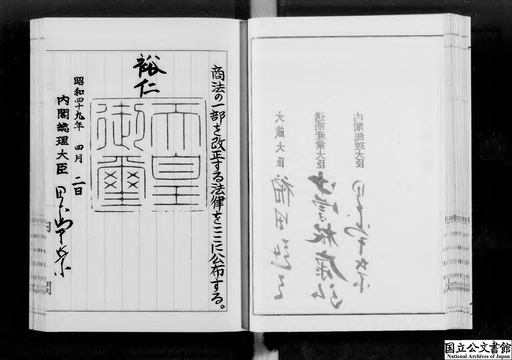 商法の一部を改正する法律をここに公布する。
裕仁
天皇
御璽
昭和四十九年 四月 二日
内閣総理大臣 田中角榮
内閣
内閣総理大臣
通商産業大臣
大蔵大臣
国立公文書館
National Archives of Japan